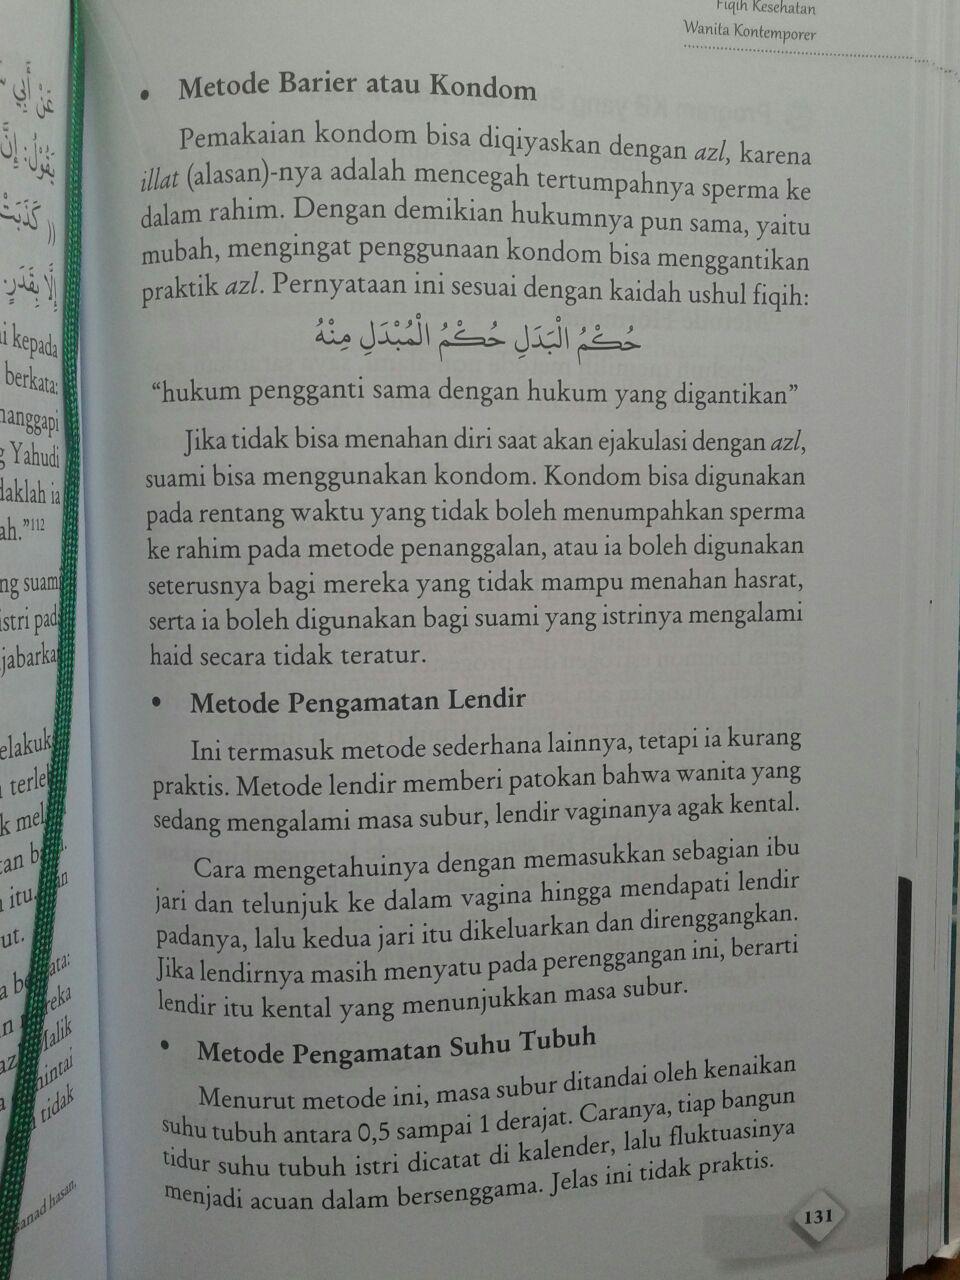 Fiqih Kesehatan
Wanita Kontemporer
• Metode Barier atau Kondom
Pemakaian kondom bisa diqiyaskan dengan azl, karena
illat (alasan)-nya adalah mencegah tertumpahnya sperma ke
dalam rahim. Dengan demikian hukumnya pun sama, yaitu
mubah, mengingat penggunaan kondom bisa menggantikan
praktik azl. Pernyataan ini sesuai dengan kaidah ushul fiqih:
حُكْمُ الْبَدَلِ حُكْمُ الْمُبْدَلِ مِنْهُ
“hukum pengganti sama dengan hukum yang digantikan”
Jika tidak bisa menahan diri saat akan ejakulasi dengan azl,
suami bisa menggunakan kondom. Kondom bisa digunakan
pada rentang waktu yang tidak boleh menumpahkan sperma
ke rahim pada metode penanggalan, atau ia boleh digunakan
seterusnya bagi mereka yang tidak mampu menahan hasrat,
serta ia boleh digunakan bagi suami yang istrinya mengalami
haid secara tidak teratur.
• Metode Pengamatan Lendir
Ini termasuk metode sederhana lainnya, tetapi ia kurang
praktis. Metode lendir memberi patokan bahwa wanita yang
sedang mengalami masa subur, lendir vaginanya agak kental.
Cara mengetahuinya dengan memasukkan sebagian ibu
jari dan telunjuk ke dalam vagina hingga mendapati lendir
padanya, lalu kedua jari itu dikeluarkan dan direnggangkan.
Jika lendirnya masih menyatu pada perenggangan ini, berarti
lendir itu kental yang menunjukkan masa subur.
• Metode Pengamatan Suhu Tubuh
Menurut metode ini, masa subur ditandai oleh kenaikan
suhu tubuh antara 0,5 sampai 1 derajat. Caranya, tiap bangun
tidur suhu tubuh istri dicatat di kalender, lalu fluktuasinya
menjadi acuan dalam bersenggama. Jelas ini tidak praktis.
131